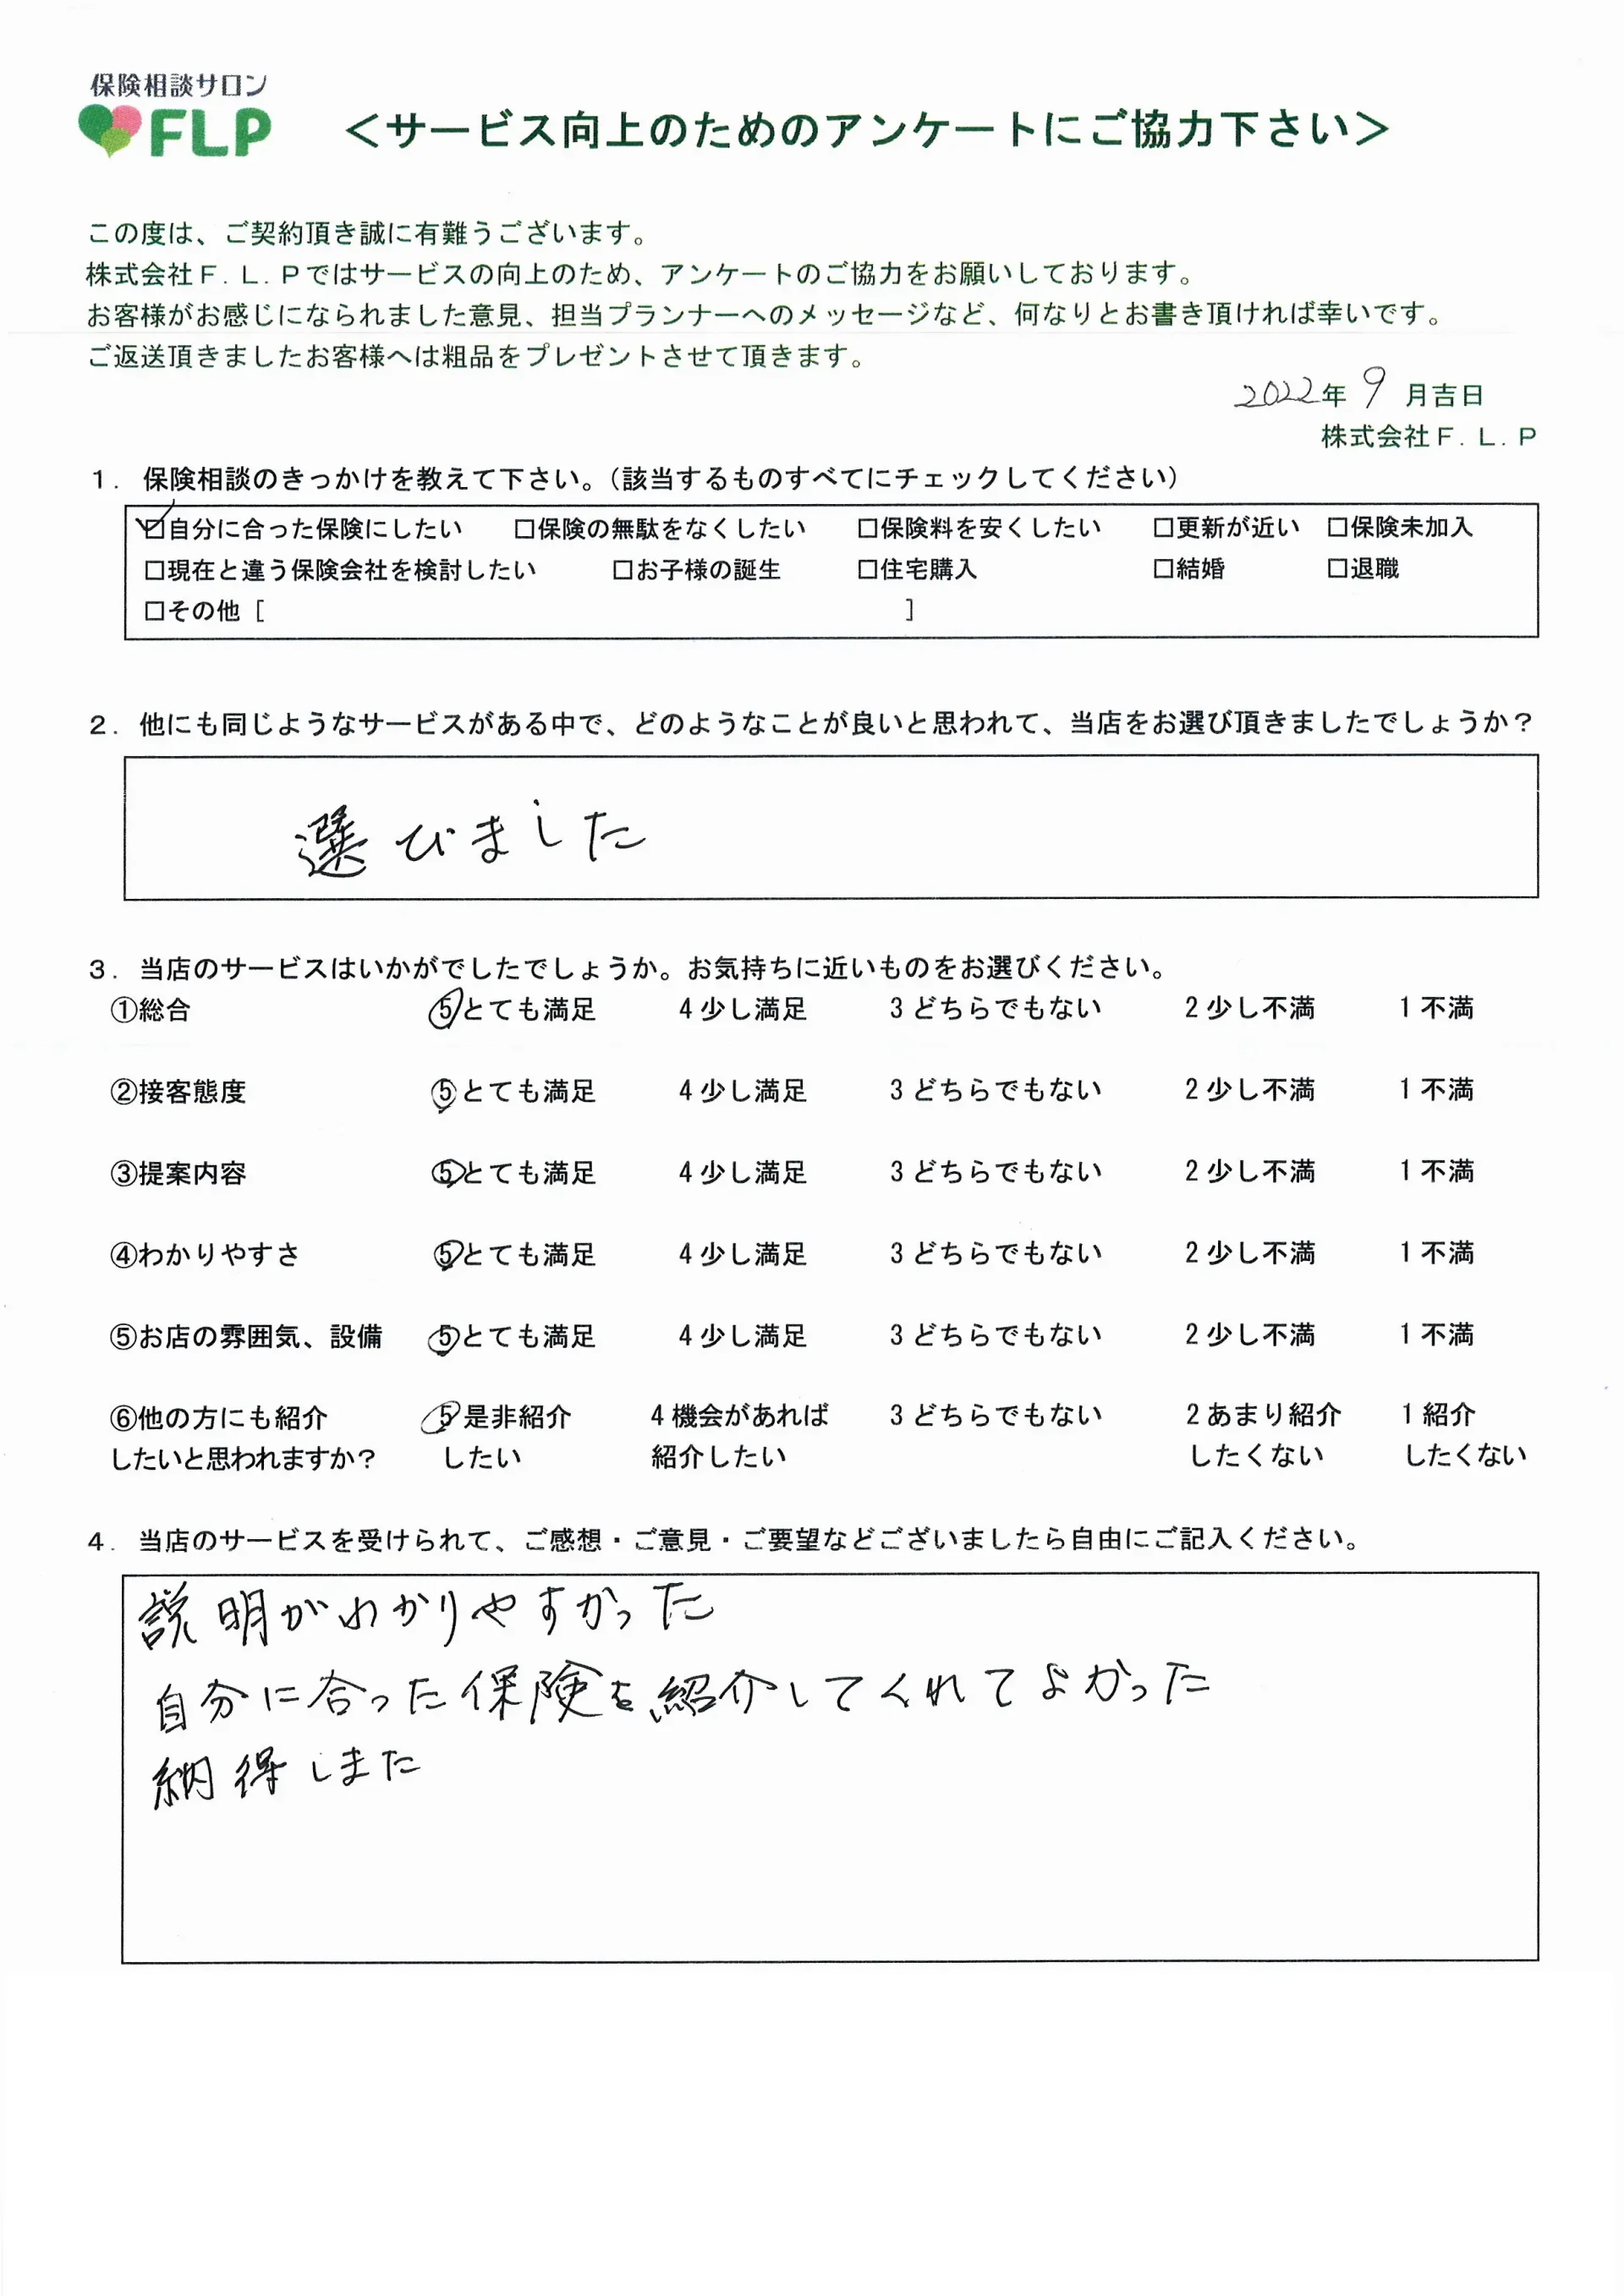 保険相談サロン
FLP
＜サービス向上のためのアンケートにご協力下さい＞
この度は、ご契約頂き誠に有難うございます。
株式会社Ｆ．Ｌ．Ｐではサービスの向上のため、アンケートのご協力をお願いしております。
お客様がお感じになられました意見、担当プランナーへのメッセージなど、何なりとお書き頂ければ幸いです。
ご返送頂きましたお客様へは粗品をプレゼントさせて頂きます。
2022年 9 月吉日
株式会社Ｆ．Ｌ．Ｐ
１．保険相談のきっかけを教えて下さい。（該当するものすべてにチェックしてください）
☑自分に合った保険にしたい □保険の無駄をなくしたい □保険料を安くしたい □更新が近い □保険未加入
□現在と違う保険会社を検討したい □お子様の誕生 □住宅購入 □結婚 □退職
□その他［ ］
２．他にも同じようなサービスがある中で、どのようなことが良いと思われて、当店をお選び頂きましたでしょうか？
選びました
３．当店のサービスはいかがでしたでしょうか。お気持ちに近いものをお選びください。
①総合 5とても満足 4少し満足 3どちらでもない 2少し不満 1不満
②接客態度 5とても満足 4少し満足 3どちらでもない 2少し不満 1不満
③提案内容 5とても満足 4少し満足 3どちらでもない 2少し不満 1不満
④わかりやすさ 5とても満足 4少し満足 3どちらでもない 2少し不満 1不満
⑤お店の雰囲気、設備 5とても満足 4少し満足 3どちらでもない 2少し不満 1不満
⑥他の方にも紹介 5是非紹介 4機会があれば 3どちらでもない 2あまり紹介 1紹介
したいと思われますか？ したい 紹介したい したくない したくない
４．当店のサービスを受けられて、ご感想・ご意見・ご要望などございましたら自由にご記入ください。
説明がわかりやすかった
自分に合った保険を紹介してくれてよかった
納得しまた